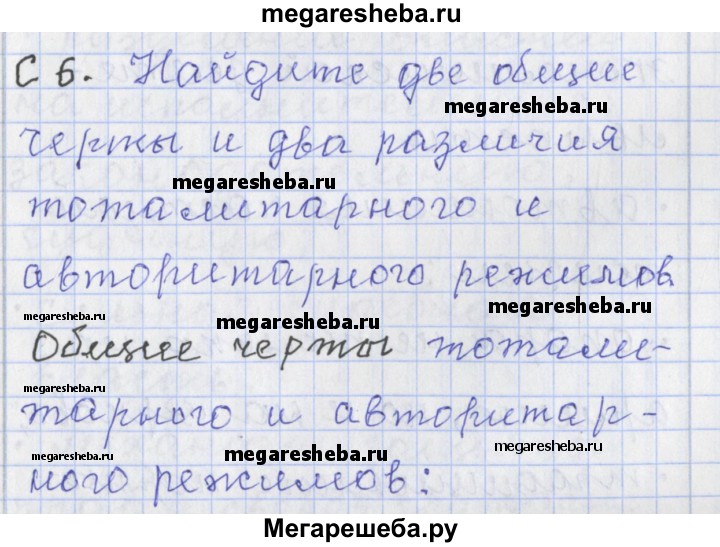 megaresheba.ru
С 6. Найдите две общие
megaresheba.ru
черты и два различия
megaresheba.ru
тоталитарного и
авторитарного режимов
megaresheba.ru megaresheba.ru megaresheba.ru
Общие черты тотали-
megaresheba.ru megaresheba.ru
тарного и авторитар-
megaresheba.ru megaresheba.ru megaresheba.ru
ного режимов:
Мегарешеба.ру